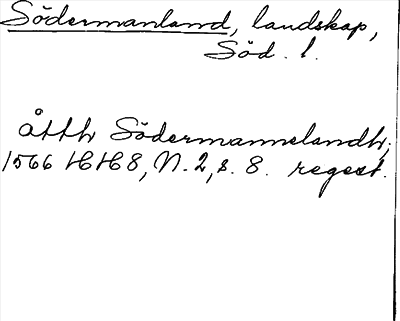 Södermanland, landskap,
Söd. l.
åtth Södermannelandh;
1566 HH 8, N. 2, s. 8. regest.